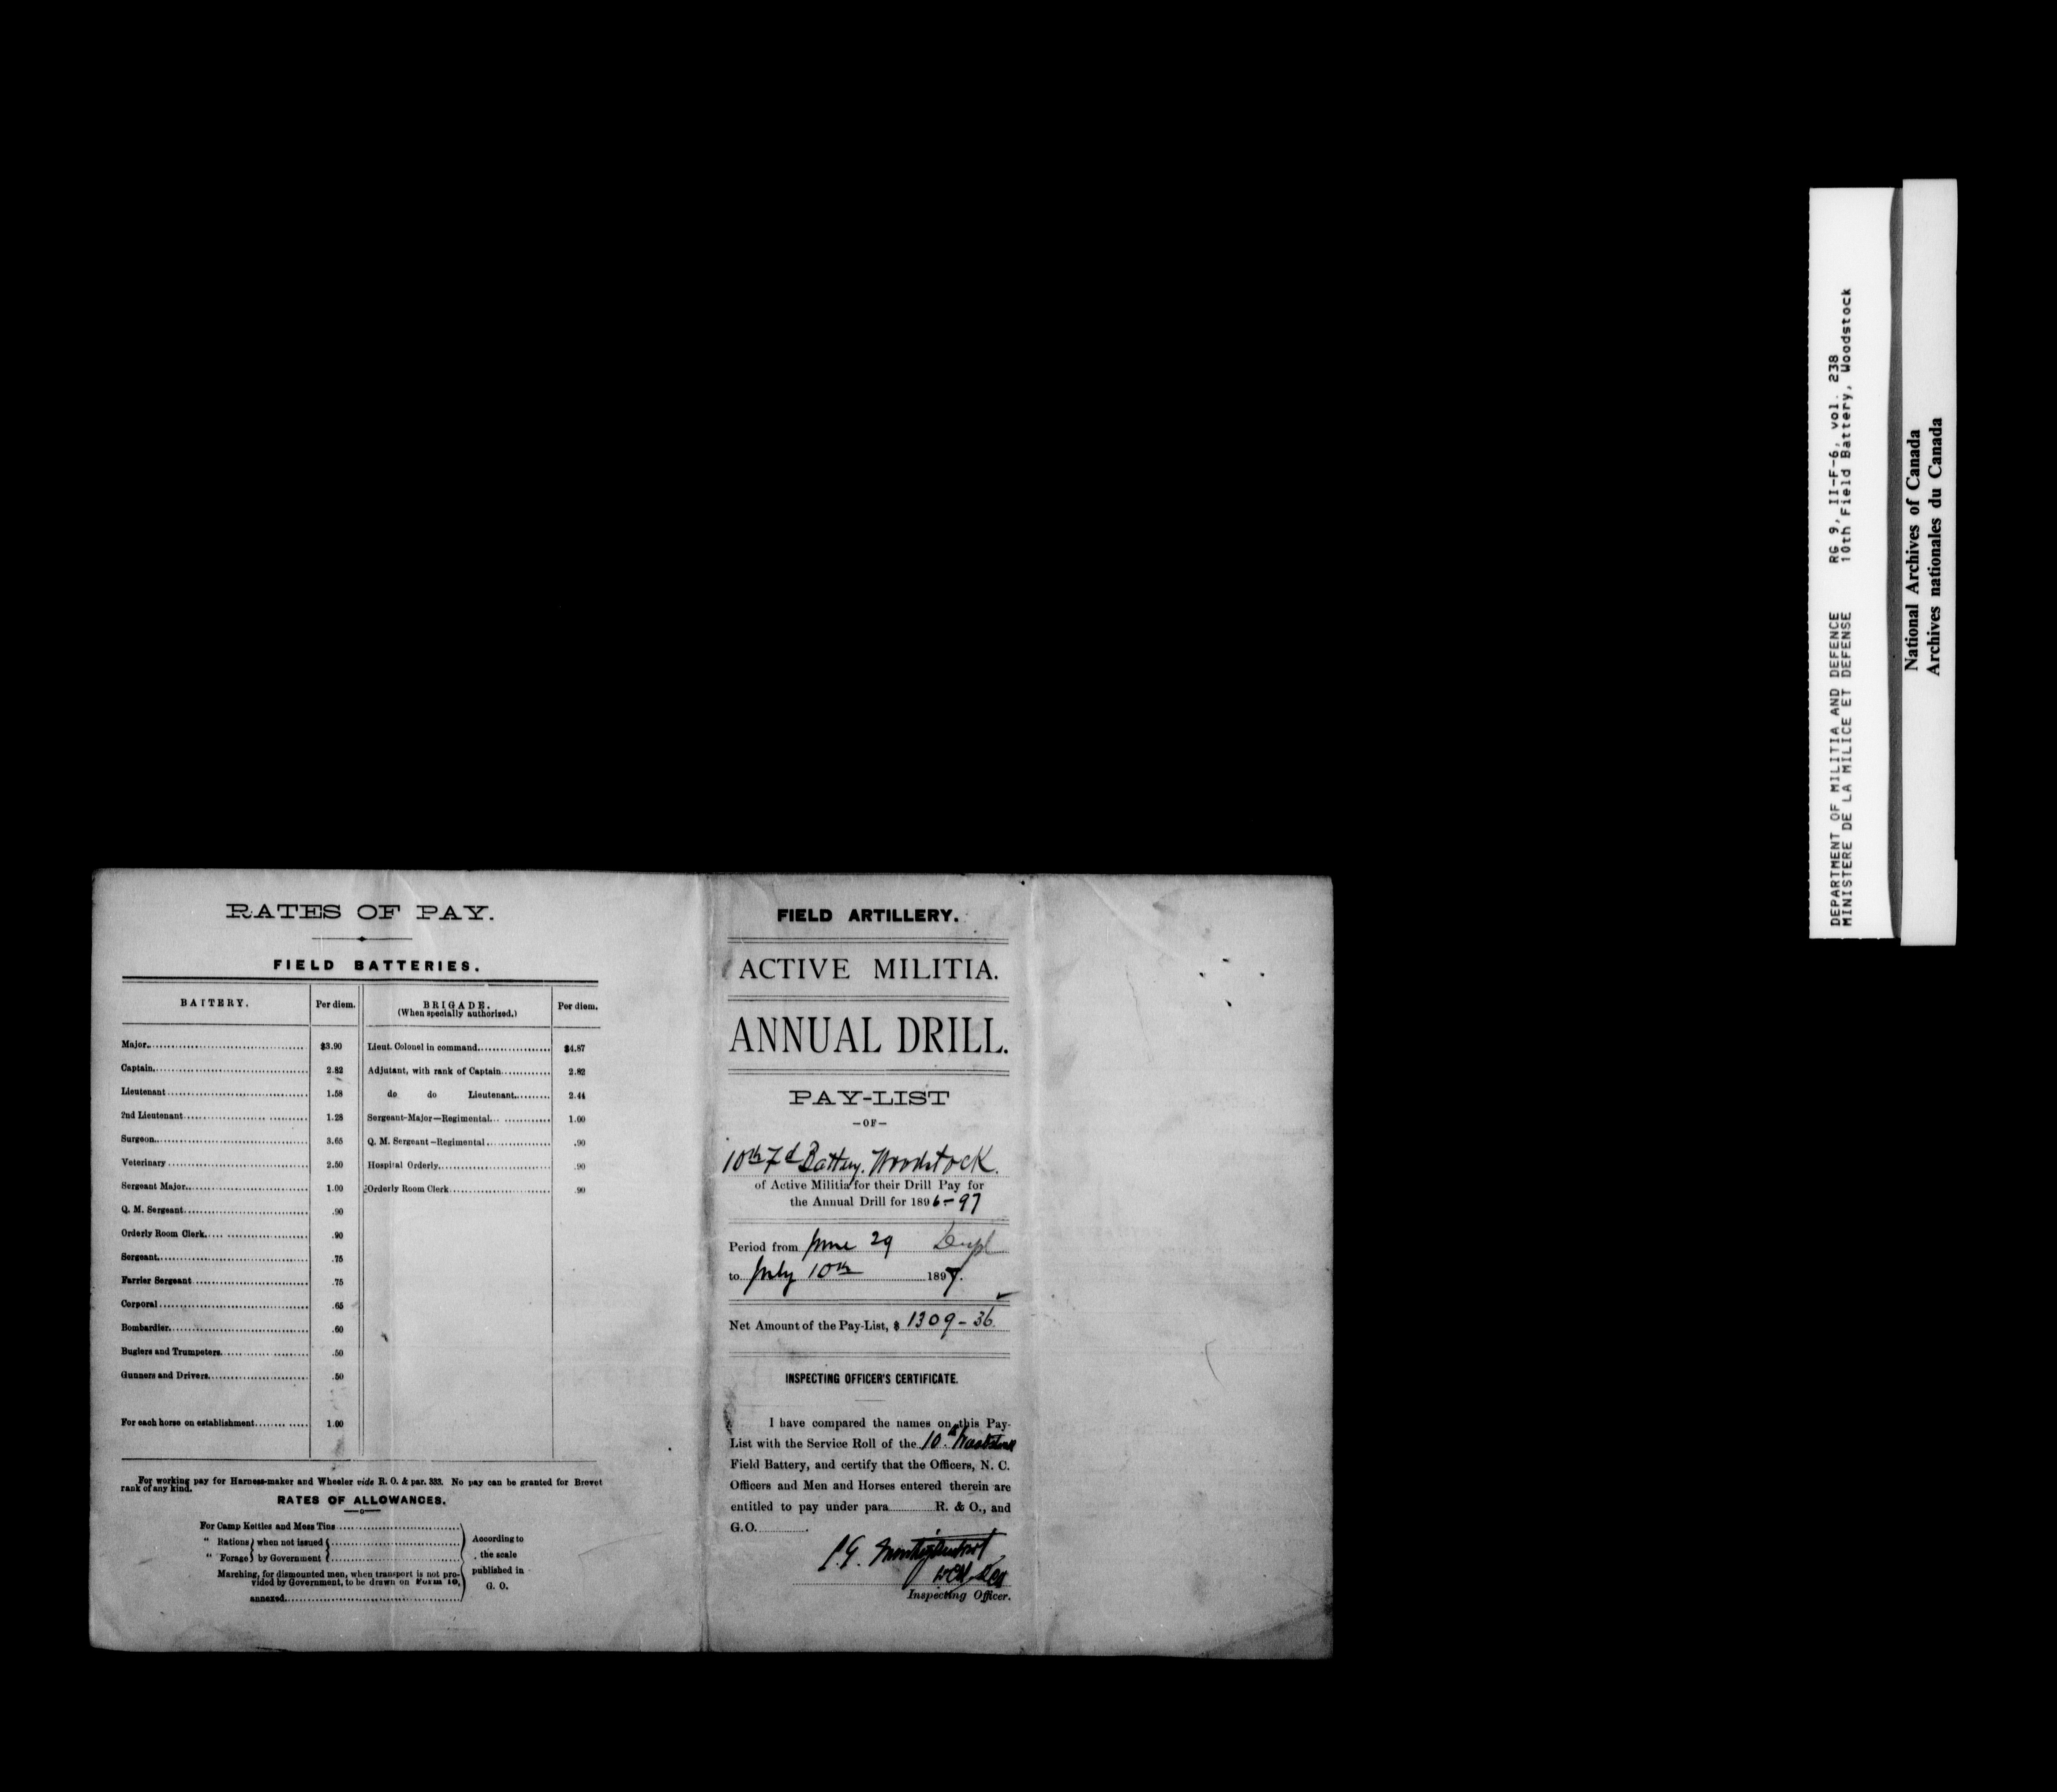 RATES OF PAY.
FIELD BATTERIES.
BATTERY. Per diem. BRIGADE. (When specially authorized.) Per diem.
Major $3.90 Lieut. Colonel in command $4.87
Captain 2.82 Adjutant, with rank of Captain 2.82
Lieutenant 1.58 do do Lieutenant 2.44
2nd Lieutenant 1.28 Sergeant-Major—Regimental 1.00
Surgeon 3.65 Q. M. Sergeant—Regimental .90
Veterinary 2.50 Hospital Orderly .90
Sergeant Major 1.00 Orderly Room Clerk .90
Q. M. Sergeant .90
Orderly Room Clerk .90
Sergeant .75
Farrier Sergeant .75
Corporal .65
Bombardier .60
Buglers and Trumpeters .50
Gunners and Drivers .50
For each horse on establishment 1.00
For working pay for Harness-maker and Wheeler vide R. O. & par. 333. No pay can be granted for Brevet
rank of any kind.
RATES OF ALLOWANCES.
For Camp Kettles and Mess Tins
" Rations } when not issued {
" Forage } by Government {
Marching, for dismounted men, when transport is not pro-
vided by Government, to be drawn on Form 10,
annexed
According to
the scale
published in
G. O.
FIELD ARTILLERY.
ACTIVE MILITIA.
ANNUAL DRILL.
PAY-LIST
—OF—
10th Fd Battery. Woodstock.
of Active Militia for their Drill Pay for
the Annual Drill for 1896-97
Period from June 29 Dupl
to July 10th 1897.
Net Amount of the Pay-List, $ 1309-36
INSPECTING OFFICER'S CERTIFICATE.
I have compared the names on this Pay-
List with the Service Roll of the 10th Woodstock
Field Battery, and certify that the Officers, N. C.
Officers and Men and Horses entered therein are
entitled to pay under para R. & O., and
G.O.
Inspecting Officer.
DEPARTMENT OF MILITIA AND DEFENCE RG 9, II-F-6, vol. 238
MINISTERE DE LA MILICE ET DEFENSE 10th Field Battery, Woodstock
National Archives of Canada
Archives nationales du Canada